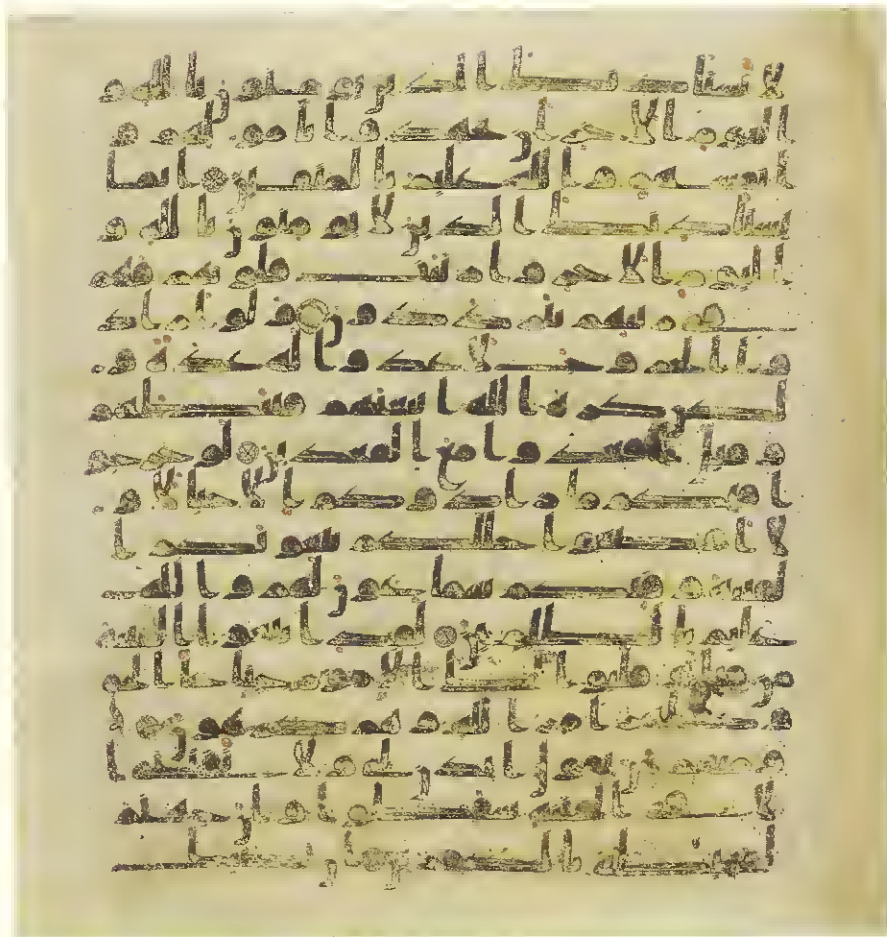 لا يستاذنك الذين يومنون بالله و
اليوم الاخر ان يجهدوا بامولهم و
انفسهم والله عليم بالمتقين انما
يستاذنك الذين لا يومنون بالله و
اليوم الاخر وارتابت قلوبهم فهم
في ريبهم يترددون ولو اراد
وا الخروج لاعدوا له عدة و
لكن كره الله انبعثهم فثبطهم
وقيل اقعدوا مع القعدين لو خرجو
ا فيكم ما زادوكم الا خبالا و
لا اوضعوا خللكم يبغونكم ا
لفتنة وفيكم سمعون لهم والله
عليم بالظلمين لقد ابتغوا الفتنة
من قبل وقلبوا لك الامور حتى جا الحق
وظهر امر الله وهم كرهون
ومنهم من يقول ايذن لي ولا تفتني ا
لا في الفتنة سقطوا وان جهنم
لمحيطة بالكفرين ان